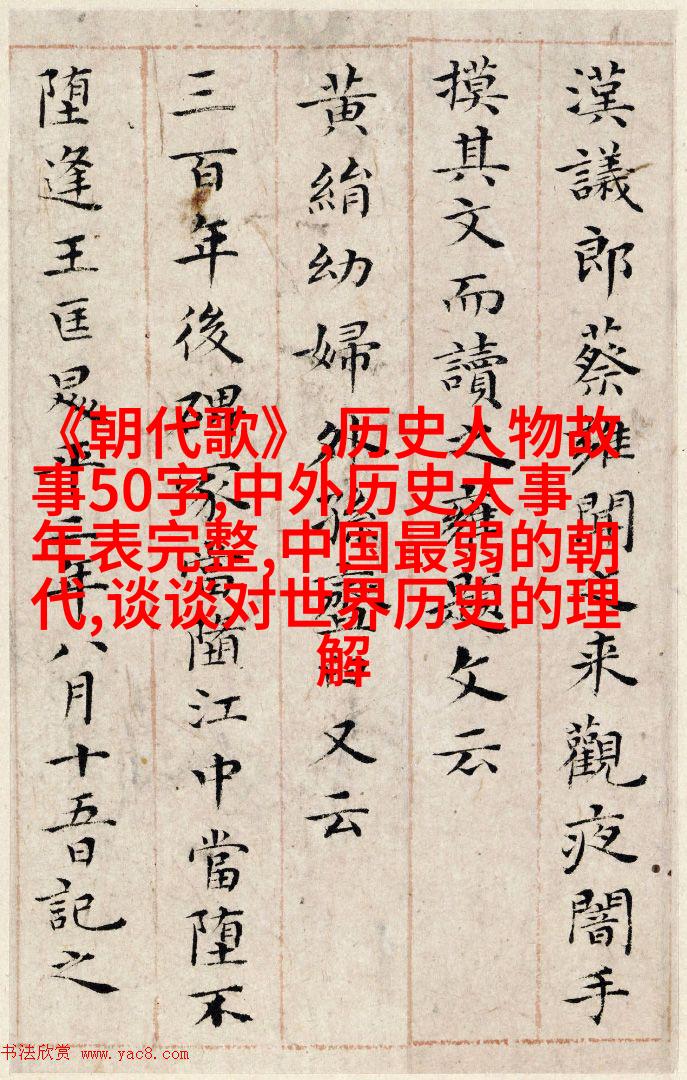 漢議郎蔡雍聞之来觀夜闇手
摸其文而讀之雍題文云
黃絹幼婦外孫齏臼又云
三百年後碑冢當堕江中當堕不
堕逢王匡昇平二年八月十五日記之
《朝代歌》,历史人物故
事50字,中外历史大事
年表完整,中国最弱的朝
代,谈谈对世界历史的理
解
书法欣赏 www.yac8.com